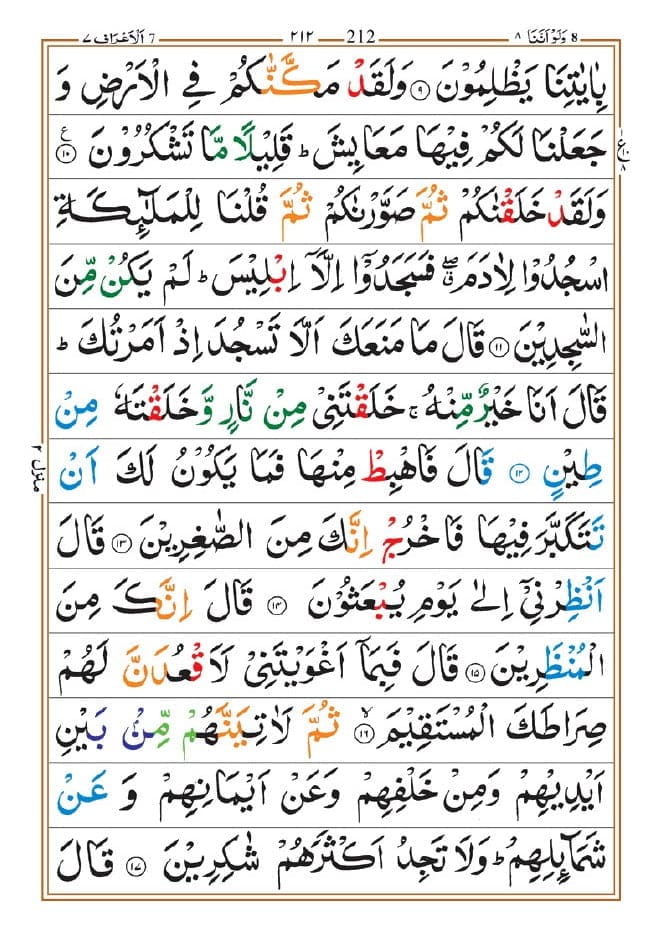 ۷ اَلْاَعْرَاف 7 ۲۱۲ 212 ۸ وَلَوْ اَنَّنَا 8
بِاٰيٰتِنَا يَظْلِمُوْنَ ۹ وَلَقَدْ مَكَّنّٰكُمْ فِي الْاَرْضِ وَ
جَعَلْنَا لَكُمْ فِيْهَا مَعَايِشَ ؕ قَلِيْلًا مَّا تَشْكُرُوْنَ ۱۰ ع
ع ۱۰ ۸
وَلَقَدْ خَلَقْنٰكُمْ ثُمَّ صَوَّرْنٰكُمْ ثُمَّ قُلْنَا لِلْمَلٰٓئِكَةِ
اسْجُدُوْا لِاٰدَمَ ۖۗ فَسَجَدُوْۤا اِلَّاۤ اِبْلِيْسَ ؕ لَمْ يَكُنْ مِّنَ
السّٰجِدِيْنَ ۱۱ قَالَ مَا مَنَعَكَ اَلَّا تَسْجُدَ اِذْ اَمَرْتُكَ ؕ
قَالَ اَنَا خَيْرٌ مِّنْهُ ۚ خَلَقْتَنِيْ مِنْ نَّارٍ وَّخَلَقْتَهٗ مِنْ
طِيْنٍ ۱۲ قَالَ فَاهْبِطْ مِنْهَا فَمَا يَكُوْنُ لَكَ اَنْ
منزل ۲
تَتَكَبَّرَ فِيْهَا فَاخْرُجْ اِنَّكَ مِنَ الصّٰغِرِيْنَ ۱۳ قَالَ
اَنْظِرْنِيْۤ اِلٰى يَوْمِ يُبْعَثُوْنَ ۱۴ قَالَ اِنَّكَ مِنَ
الْمُنْظَرِيْنَ ۱۵ قَالَ فَبِمَاۤ اَغْوَيْتَنِيْ لَاَقْعُدَنَّ لَهُمْ
صِرَاطَكَ الْمُسْتَقِيْمَ ۱۶ ۙ ثُمَّ لَاٰتِيَنَّهُمْ مِّنْۢ بَيْنِ
اَيْدِيْهِمْ وَمِنْ خَلْفِهِمْ وَعَنْ اَيْمَانِهِمْ وَ عَنْ
شَمَآئِلِهِمْ ؕ وَلَا تَجِدُ اَكْثَرَهُمْ شٰكِرِيْنَ ۱۷ قَالَ